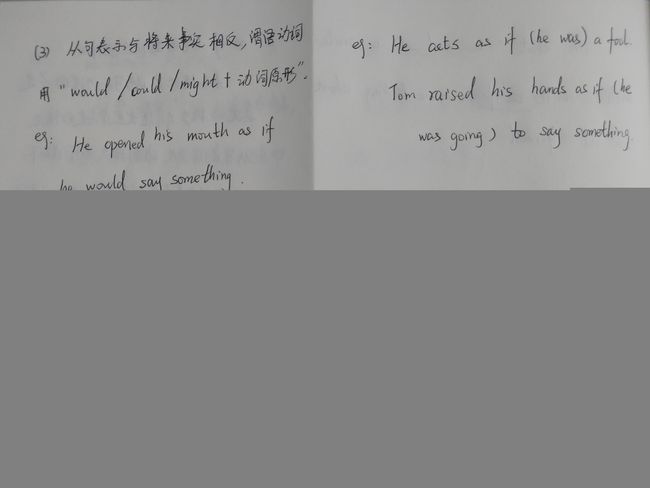 (3) 从句表示与将来事实相反,谓语动词
用 "would /could /might + 动词原形".
eg: He opened his mouth as if
he would say something.
eg: He acts as if (he was) a fool.
Tom raised his hands as if (he
was going) to say something.